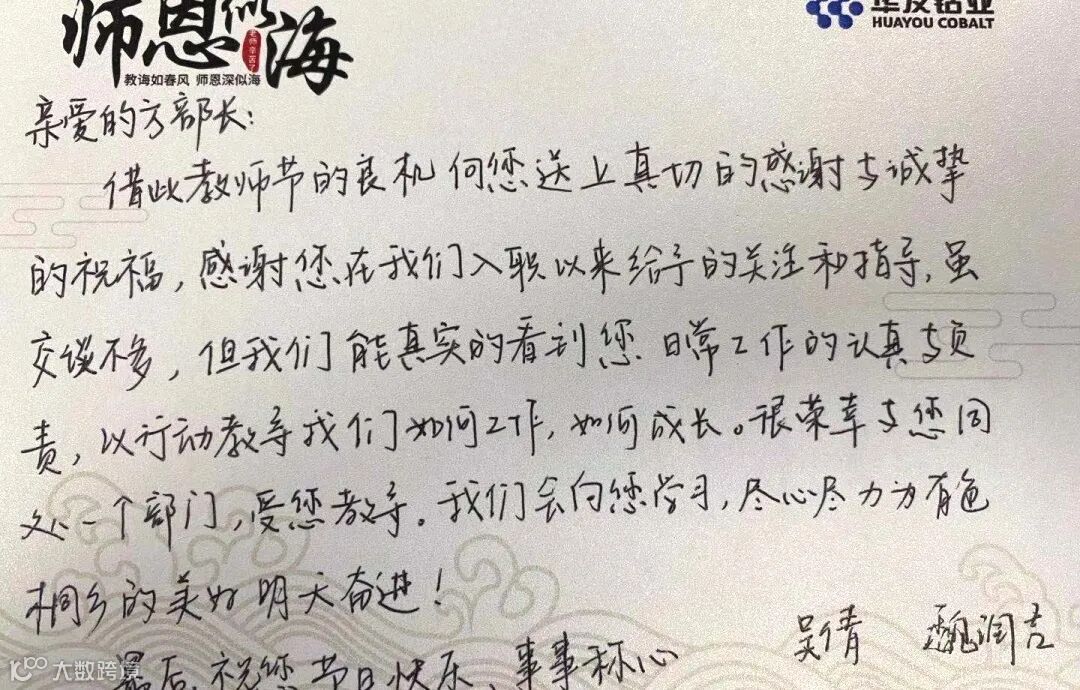 师恩似海
老师辛苦了
教诲如春风 师恩深似海
华友钴业
HUAYOU COBALT
亲爱的方部长:
借此教师节的良机向您送上真切的感谢与诚挚
的祝福,感谢您在我们入职以来给予的关注和指导,虽
交谈不多,但我们能真实的看到您日常工作的认真与负
责,以行动教导我们如何工作,如何成长。很荣幸与您同
处一个部门,受您教导。我们会向您学习,尽心尽力为有色
桐乡的美好明天奋进!
吴倩 魏润吉
最后,祝您节日快乐,事事称心
大数跨境